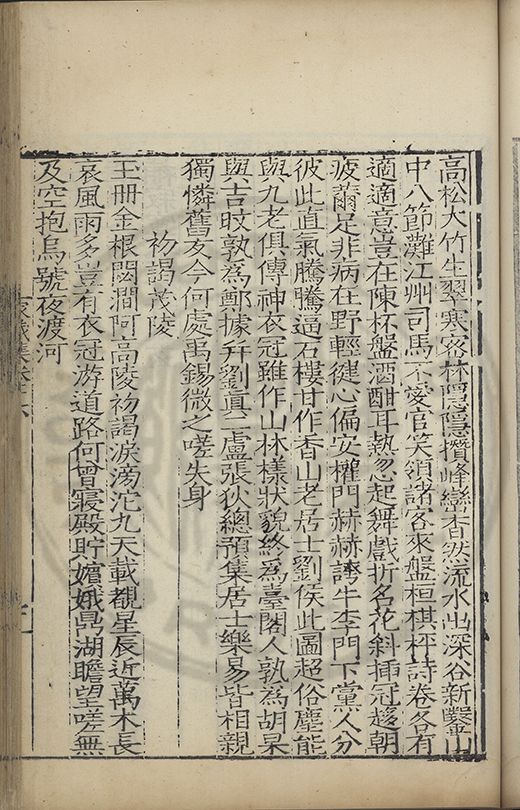 高松大竹生翠寒密林隱隱攢峰巒杳然流水出深谷新鑿山
中八節灘江州司馬不愛官笑領諸客來盤桓棋枰詩卷各有
適適意豈在陳杯盤酒酣耳熱忽起舞戲折名花斜揷冠趍朝
疲薾足非病在野輕徤心偏安權門赫赫誇牛李門下黨人分
彼此直氣騰騰逼石樓甘作香山老居士劉侯此圖超俗塵能
與九老俱傳神衣冠雖作山林樣狀貌終爲臺閣人孰爲胡杲
與吉旼孰爲鄭據幷劉眞二盧張狄總預集居士樂易皆相親
獨憐舊友今何處禹錫微之嗟失身
初謁茂陵
玉册金根閟澗阿高陵初謁淚滂沱九天載覩星辰近萬木長
哀風雨多豈有衣冠游道路何曾寢殿貯嬪娥鼎湖瞻望嗟無
及空抱烏號夜渡河